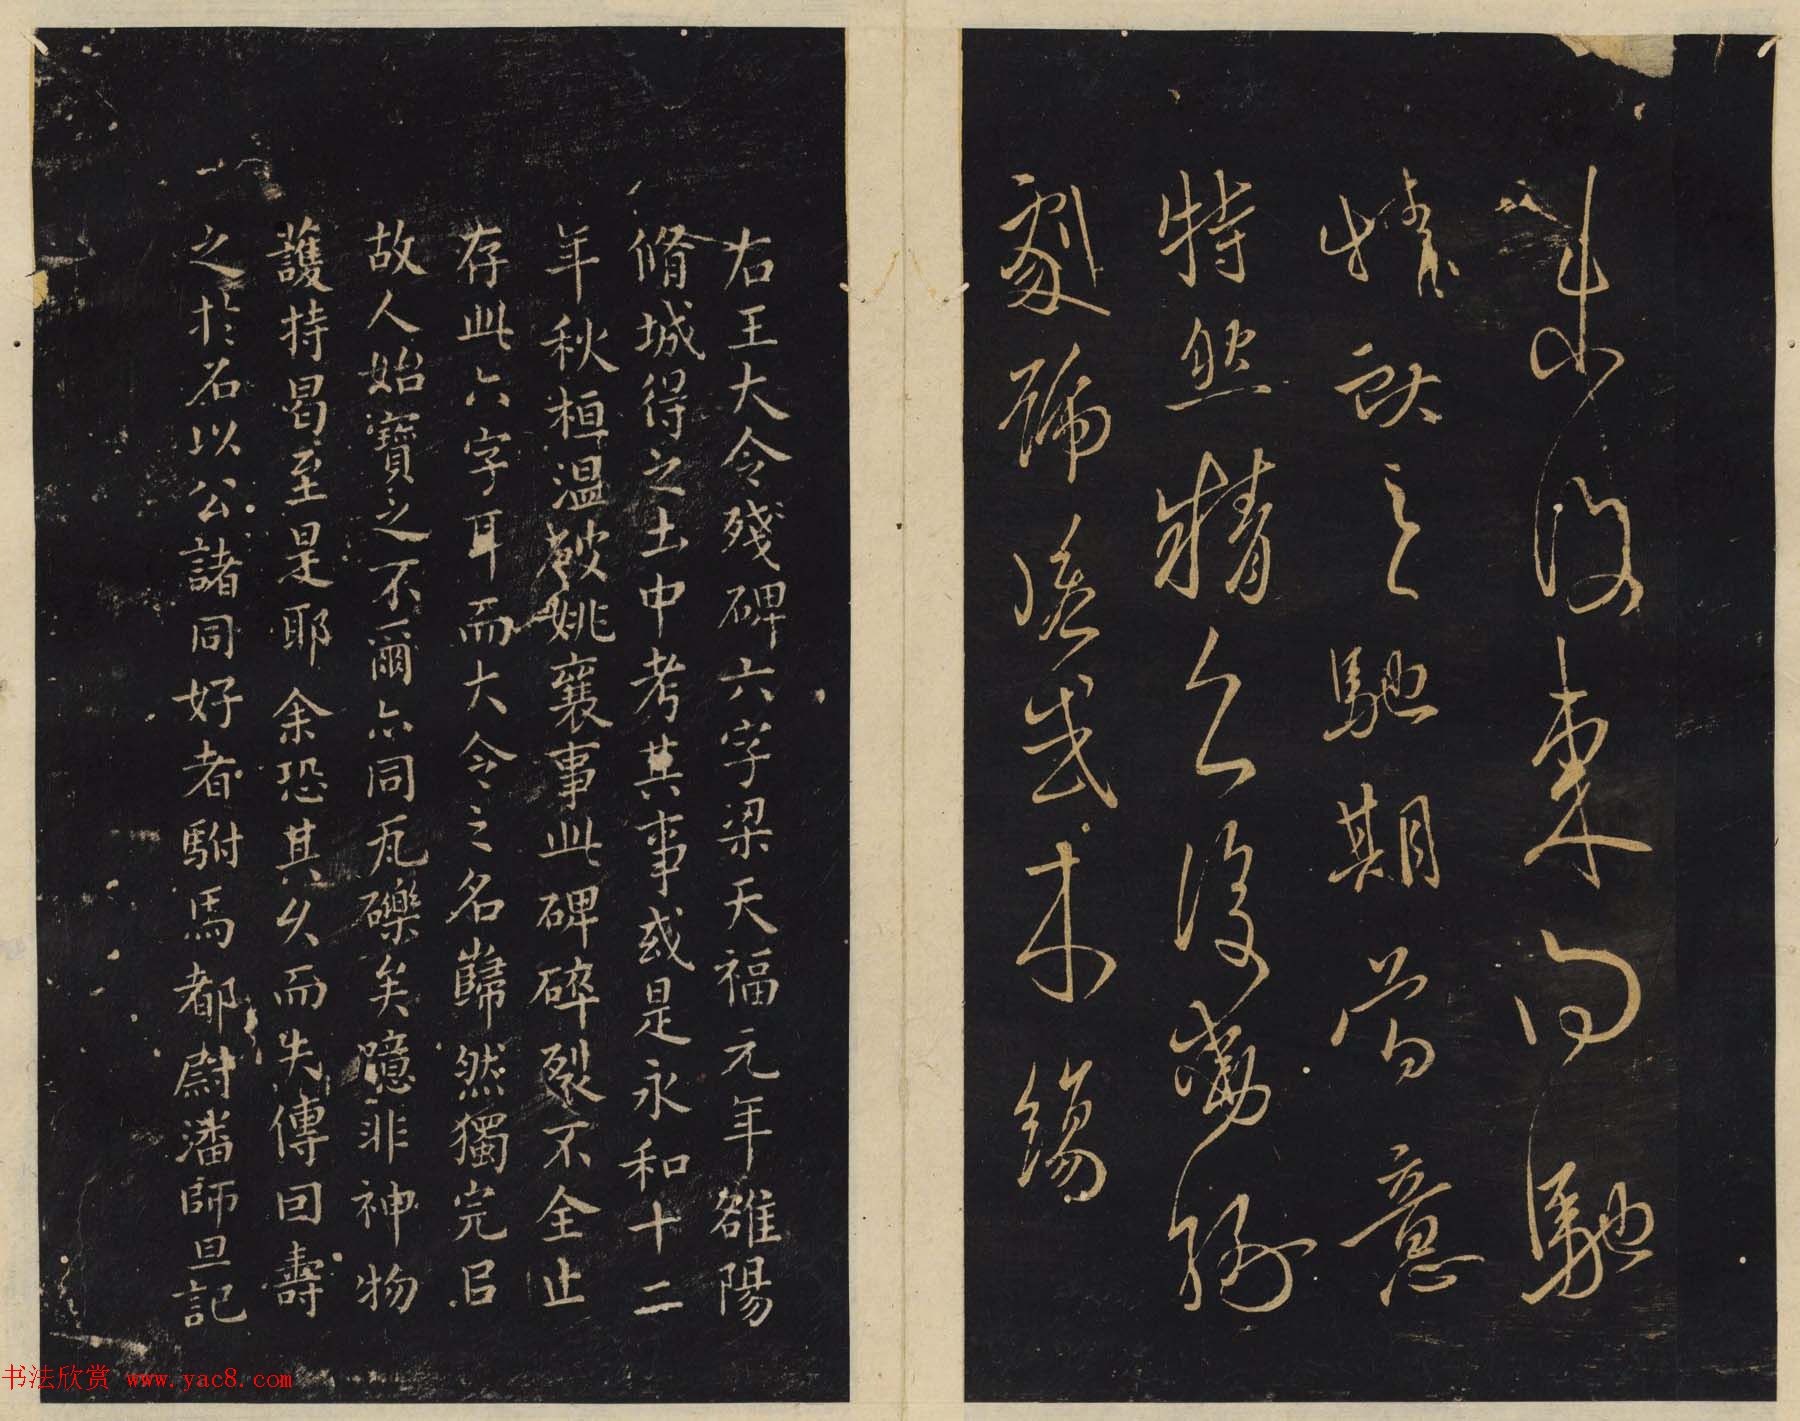 東向馳
情獻之馳期當意
特然精
劇號或未
右王大令殘碑六字梁天福元年雒陽
脩城得之土中考其事或是永和十二
年秋桓溫破姚襄事此碑碎裂不全止
存此六字耳而大令之名巋然獨完㠯
故人始寶之不爾亦同瓦礫矣噫非神物
護持曷至是耶余恐其久而失傳因壽
之於石以公諸同好者駙馬都尉潘師旦記
书法欣赏 www.yac8.com